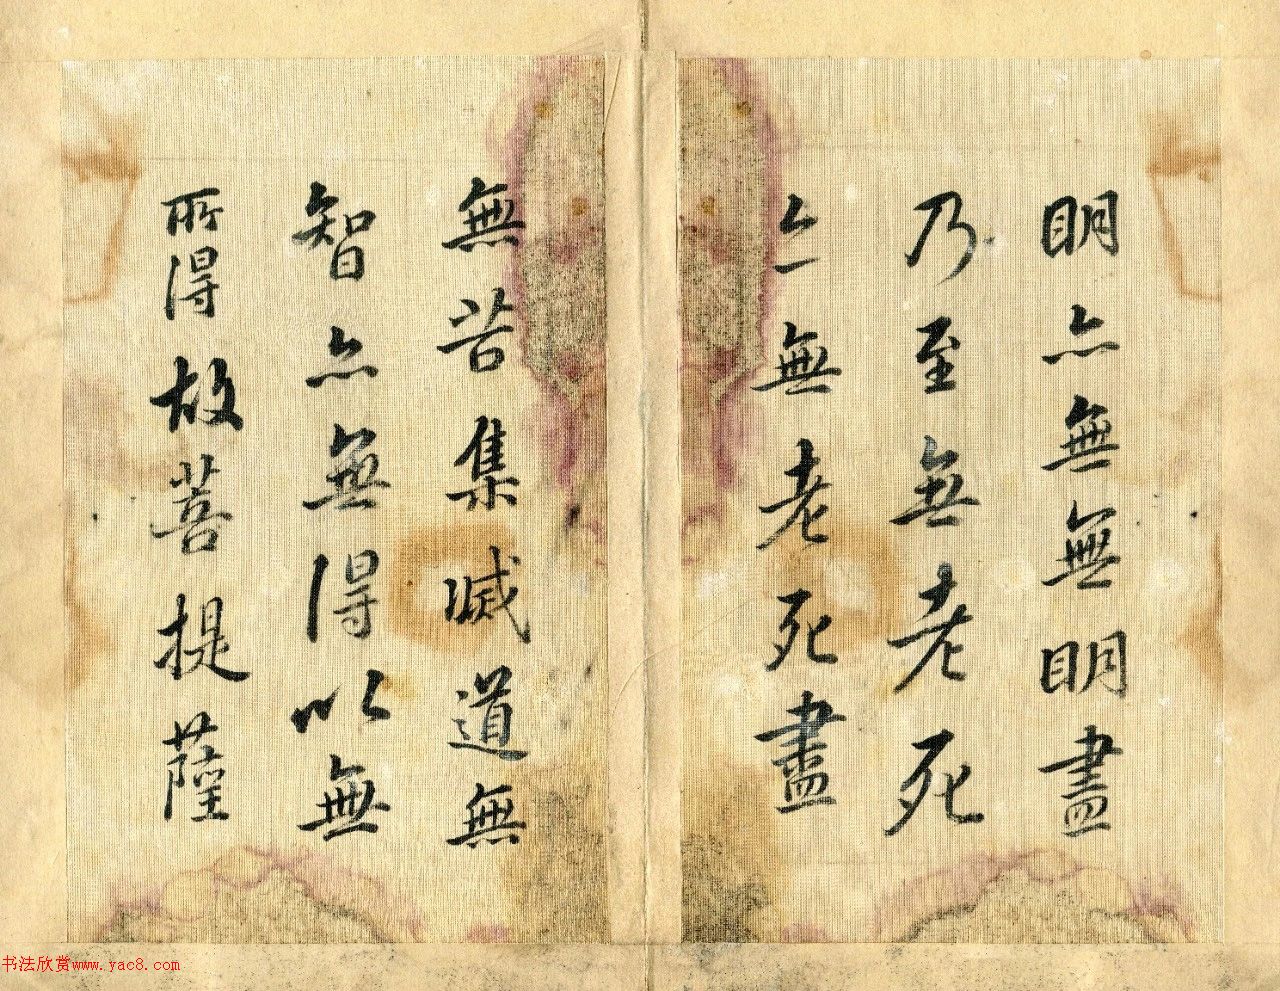 明亦無無明盡
乃至無老死
亦無老死盡
無苦集滅道無
智亦無得以無
所得故菩提薩
书法欣赏www.yac8.com